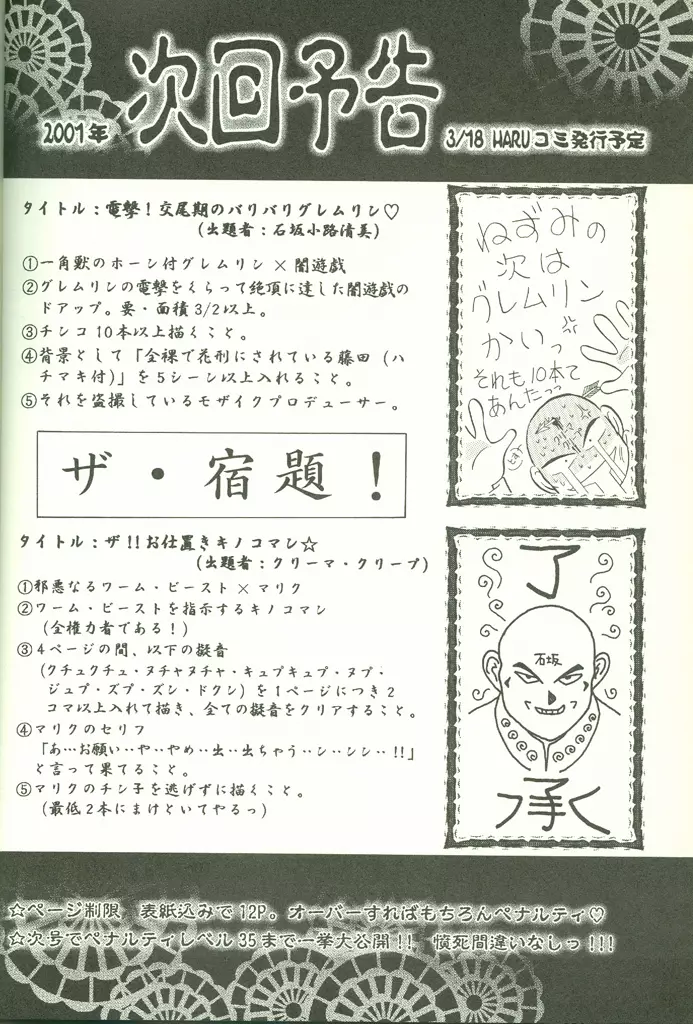 2001年 次回予告 3/18 HARUコミ発行予定
タイトル：電撃！交尾期のバリバリグレムリン♡
(出題者：石坂小路清美)
①一角獣のホーン付グレムリン×闇遊戯
②グレムリンの電撃をくらって絶頂に達した闇遊戯の
ドアップ。要・面積3/2以上。
③チンコ10本以上描くこと。
④背景として「全裸で花刑にされている藤田(ハ
チマキ付)」を5シーン以上入れること。
⑤それを盗撮しているモザイクプロデューサー。
ねずみの
次は
グレムリン
かいっ
それも10本て
あんたっっ
ザ・宿題！
タイトル：ザ!!お仕置きキノコマン☆
(出題者：クリーマ・クリープ)
①邪悪なるワーム・ビースト×マリク
②ワーム・ビーストを指示するキノコマン
(全権力者である！)
③4ページの間、以下の擬音
(クチュクチュ・ヌチャヌチャ・キュプキュプ・ヌプ・
ジュプ・ズプ・ズン・ドクン)を1ページにつき2
コマ以上入れて描き、全ての擬音をクリアすること。
④マリクのセリフ
「あ…お願い‥や‥やめ‥出‥出ちゃう‥シ‥シシ‥!!」
と言って果てること。
⑤マリクのチン子を逃げずに描くこと。
(最低2本にまけといてやるっ)
了
石坂
承
☆ページ制限 表紙込みで12P。オーバーすればもちろんペナルティ♡
☆次号でペナルティレベル35まで一挙大公開!! 憤死間違いなしっ!!!